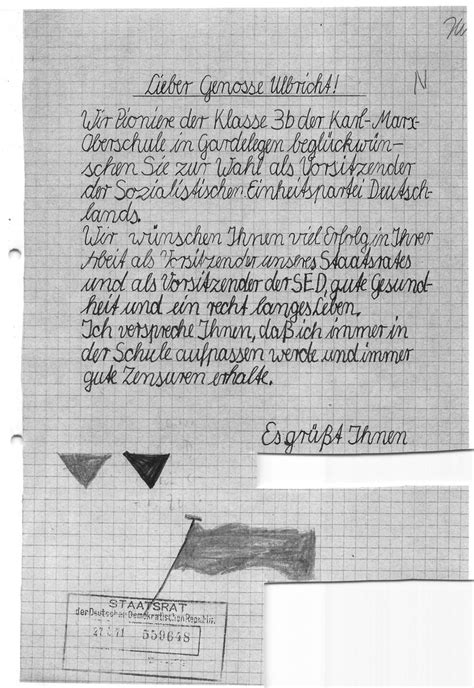 Lieber Genosse Ulbricht!
N
Wir Pioniere der Klasse 3b der Karl-Marx-
Oberschule in Gardelegen beglückwün-
schen Sie zur Wahl als Vorsitzender
der Sozialistischen Einheitspartei Deutsch-
lands.
Wir wünschen Ihnen viel Erfolg in Ihrer
Arbeit als Vorsitzender unseres Staatsrates
und als Vorsitzender der SED, gute Gesund-
heit und ein recht langes Leben.
Ich verspreche Ihnen, daß ich immer in
der Schule aufpassen werde und immer
gute Zensuren erhalte.
Es grüßt Ihnen
STAATSRAT
der Deutschen Demokratischen Republik
71 559648